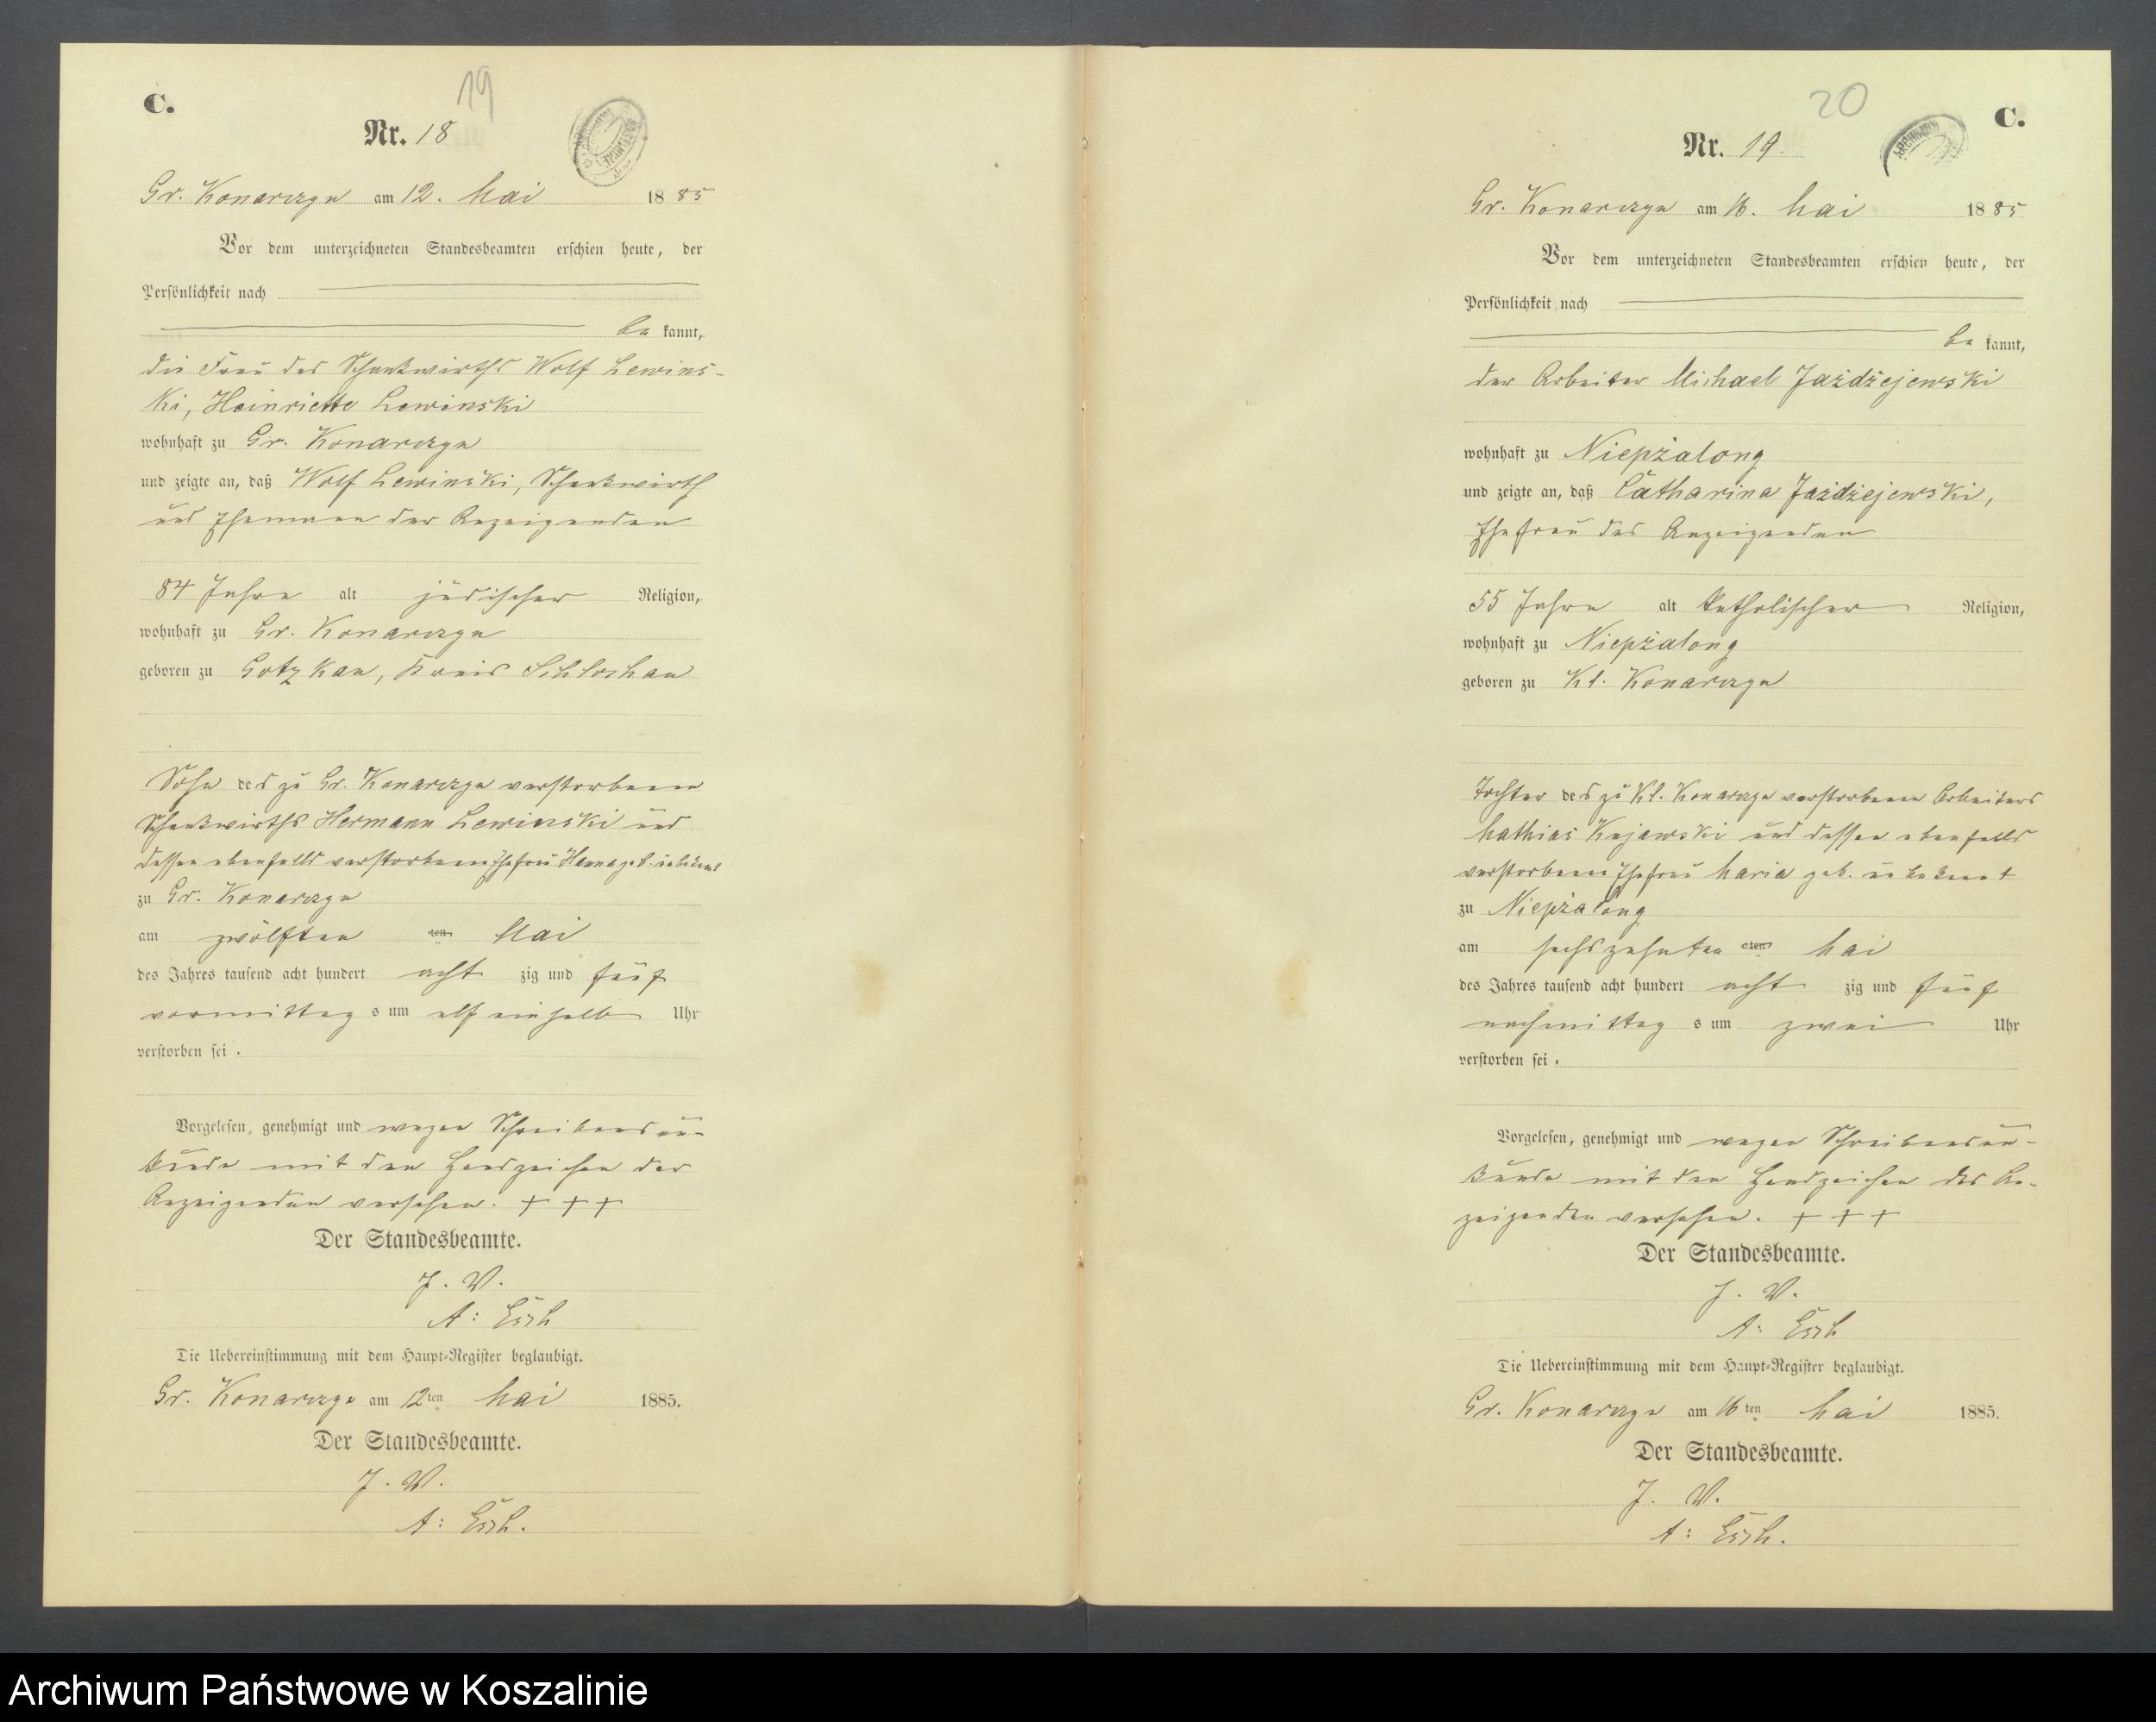 19
C.
Nr. 18
Gr. Konarczyn am 12. Mai 1885
Vor dem unterzeichneten Standesbeamten erschien heute, der
Persönlichkeit nach
be kannt,
die Frau des Schankwirths Wolf Lewins-
ki, Heinriette Lewinski
wohnhaft zu Gr. Konarczyn
und zeigte an, daß Wolf Lewinski, Schankwirth
und Ehemann der Anzeigenden
84 Jahre alt jüdischer Religion,
wohnhaft zu Gr. Konarczyn
geboren zu Gotzkau, Kreis Schlochau
Sohn des zu Gr. Konarczyn verstorbenen
Schankwirths Hermann Lewinski und
dessen ebenfalls verstorbenen Ehefrau Hanna geb. unbekannt
zu Gr. Konarczyn
am zwölften ten Mai
des Jahres tausend acht hundert acht zig und fünf
vormittag s um elf einhalb Uhr
verstorben sei.
Vorgelesen, genehmigt und wegen Schreibensun-
kunde mit den Handzeichen der
Anzeigenden versehen. + + +
Der Standesbeamte.
J. V.
A: Esch
Die Uebereinstimmung mit dem Haupt-Register beglaubigt.
Gr. Konarczyn am 12ten Mai 1885.
Der Standesbeamte.
J. V.
A: Esch.
20
C.
Nr. 19.
Gr. Konarczyn am 16. Mai 1885
Vor dem unterzeichneten Standesbeamten erschien heute, der
Persönlichkeit nach
be kannt,
der Arbeiter Michael Jażdżejewski
wohnhaft zu Niepżalong
und zeigte an, daß Catharina Jażdżejewski,
Ehefrau des Anzeigenden
55 Jahre alt katholischer Religion,
wohnhaft zu Niepżalong
geboren zu Kl. Konarczyn
Tochter des zu Kl. Konarczyn verstorbenen Arbeiters
Mathias Kujawski und dessen ebenfalls
verstorbenen Ehefrau Maria geb. unbekannt
zu Niepżalong
am sechszehnten ten Mai
des Jahres tausend acht hundert acht zig und fünf
nachmittag s um zwei Uhr
verstorben sei.
Vorgelesen, genehmigt und wegen Schreibensun-
kunde mit den Handzeichen des An-
zeigenden versehen. + + +
Der Standesbeamte.
J. V.
A: Esch
Die Uebereinstimmung mit dem Haupt-Register beglaubigt.
Gr. Konarczyn am 16ten Mai 1885.
Der Standesbeamte.
J. V.
A: Esch.
Archiwum Państwowe w Koszalinie